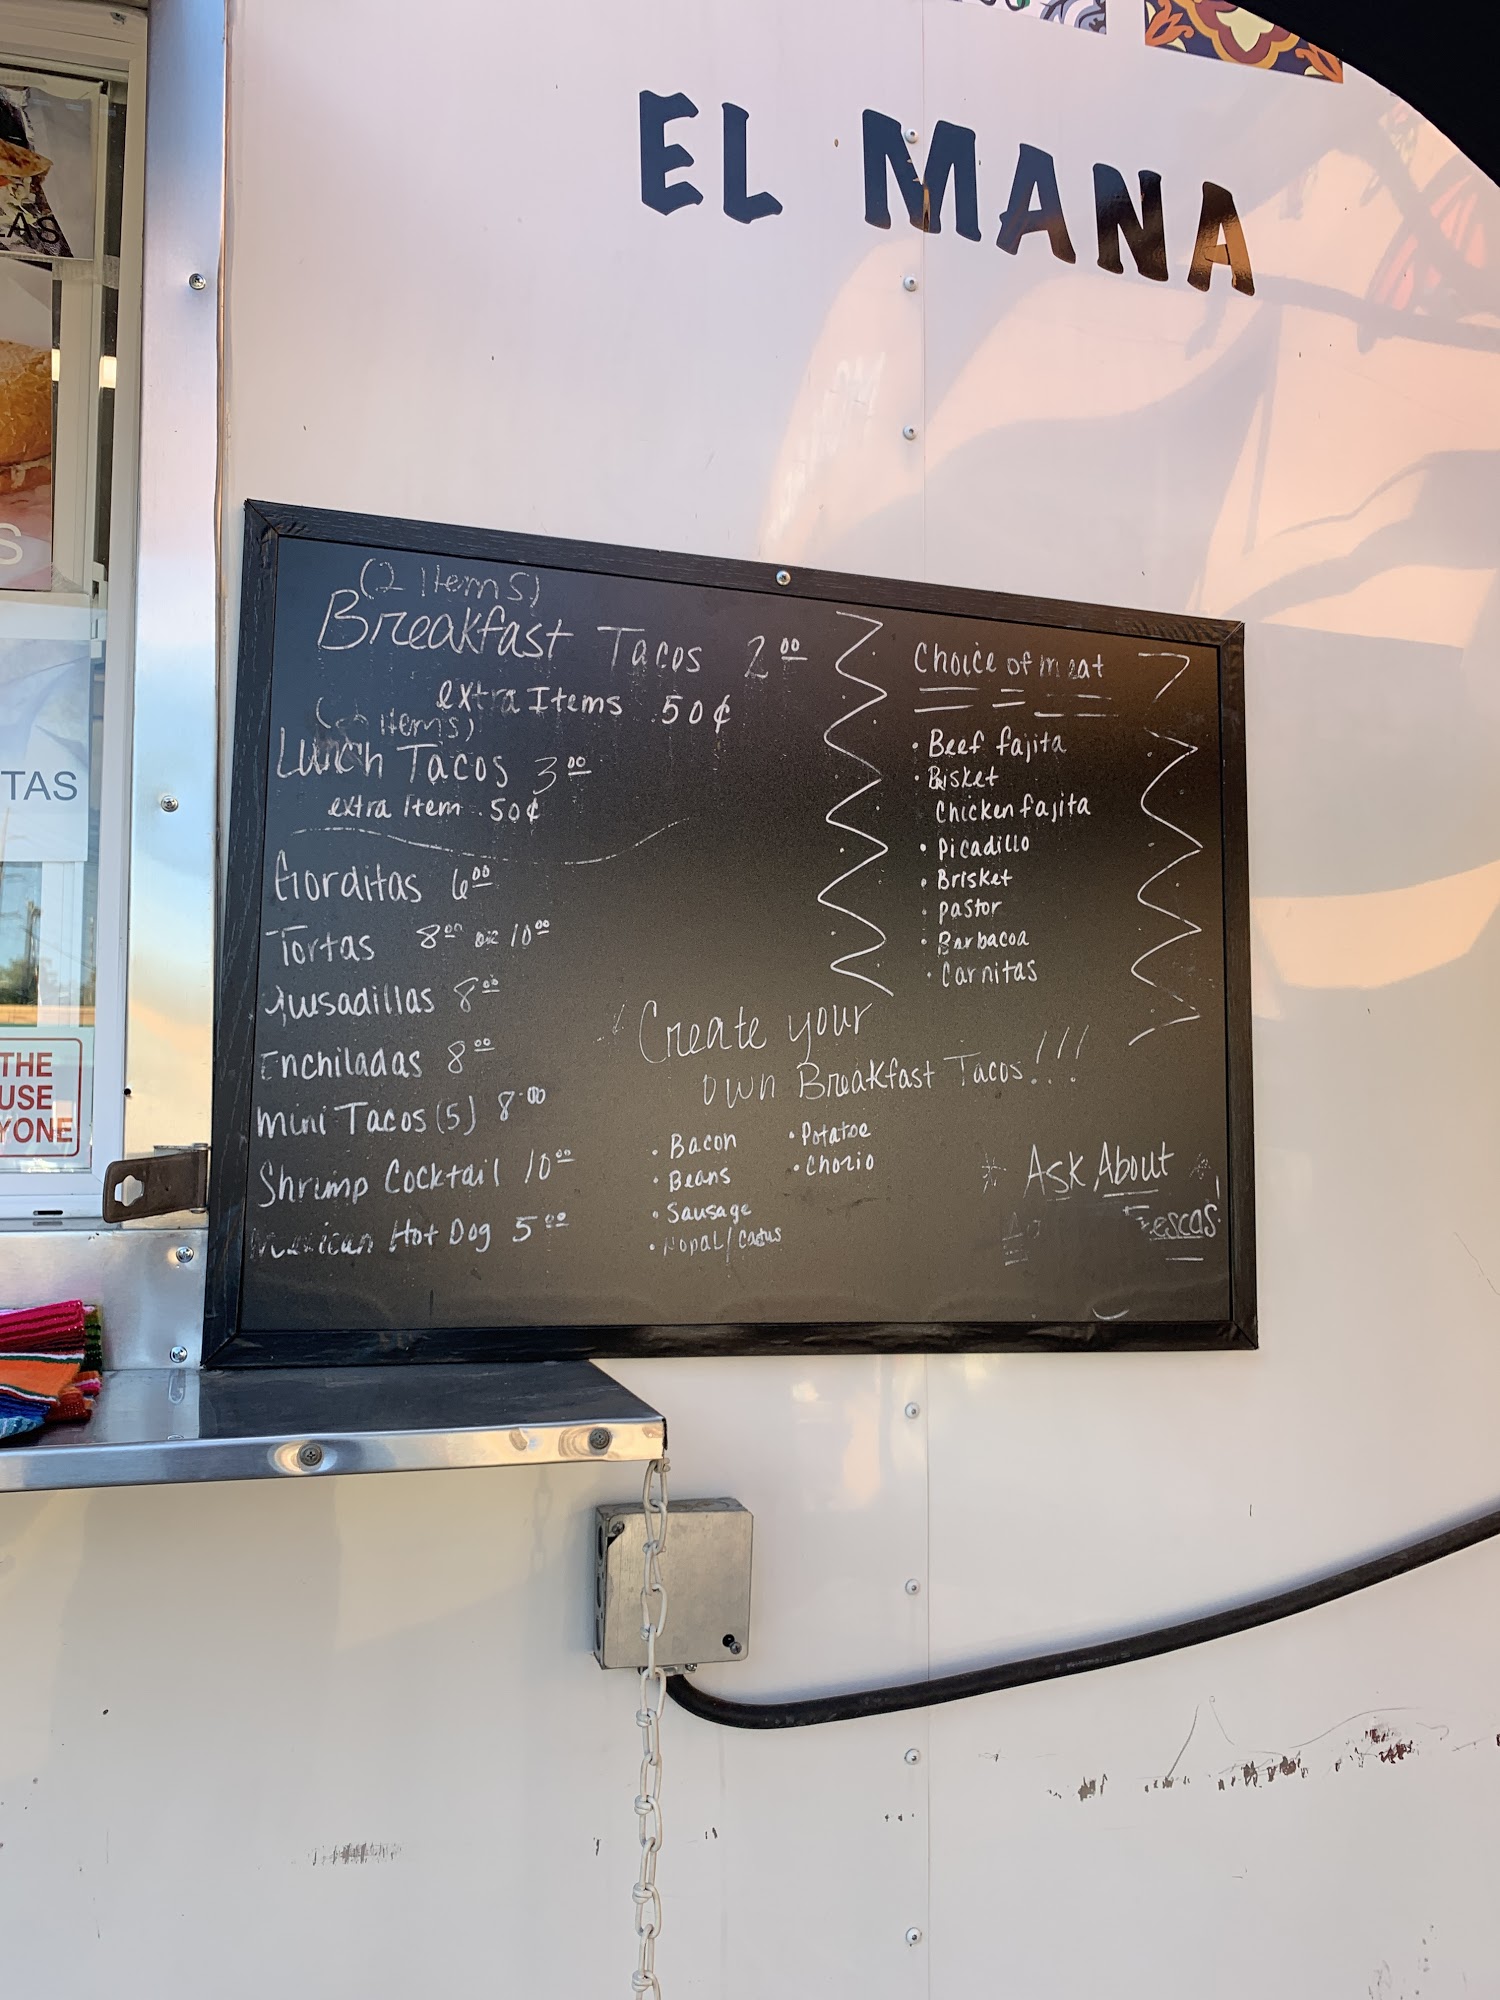 EL MANA
(2 Items)
Breakfast Tacos 2.00
extra Items .50¢
items)
Lunch Tacos 3.00
extra Item .50¢
Gorditas 6.00
Tortas 8.00 or 10.00
Qusadillas 8.00
Enchiladas 8.00
mini Tacos (5) 8.00
Shrimp Cocktail 10.00
Mexican Hot Dog 5.00
Choice of meat
• Beef fajita
• Bisket
Chicken fajita
• Picadillo
• Brisket
• Pastor
• Barbacoa
• Carnitas
Create your
own Breakfast Tacos!!!
• Bacon
• Beans
• Sausage
• Nopal/Cactus
• Potatoe
• Chorio
* Ask About *
escas
LAS
S
TAS
THE
USE
YONE